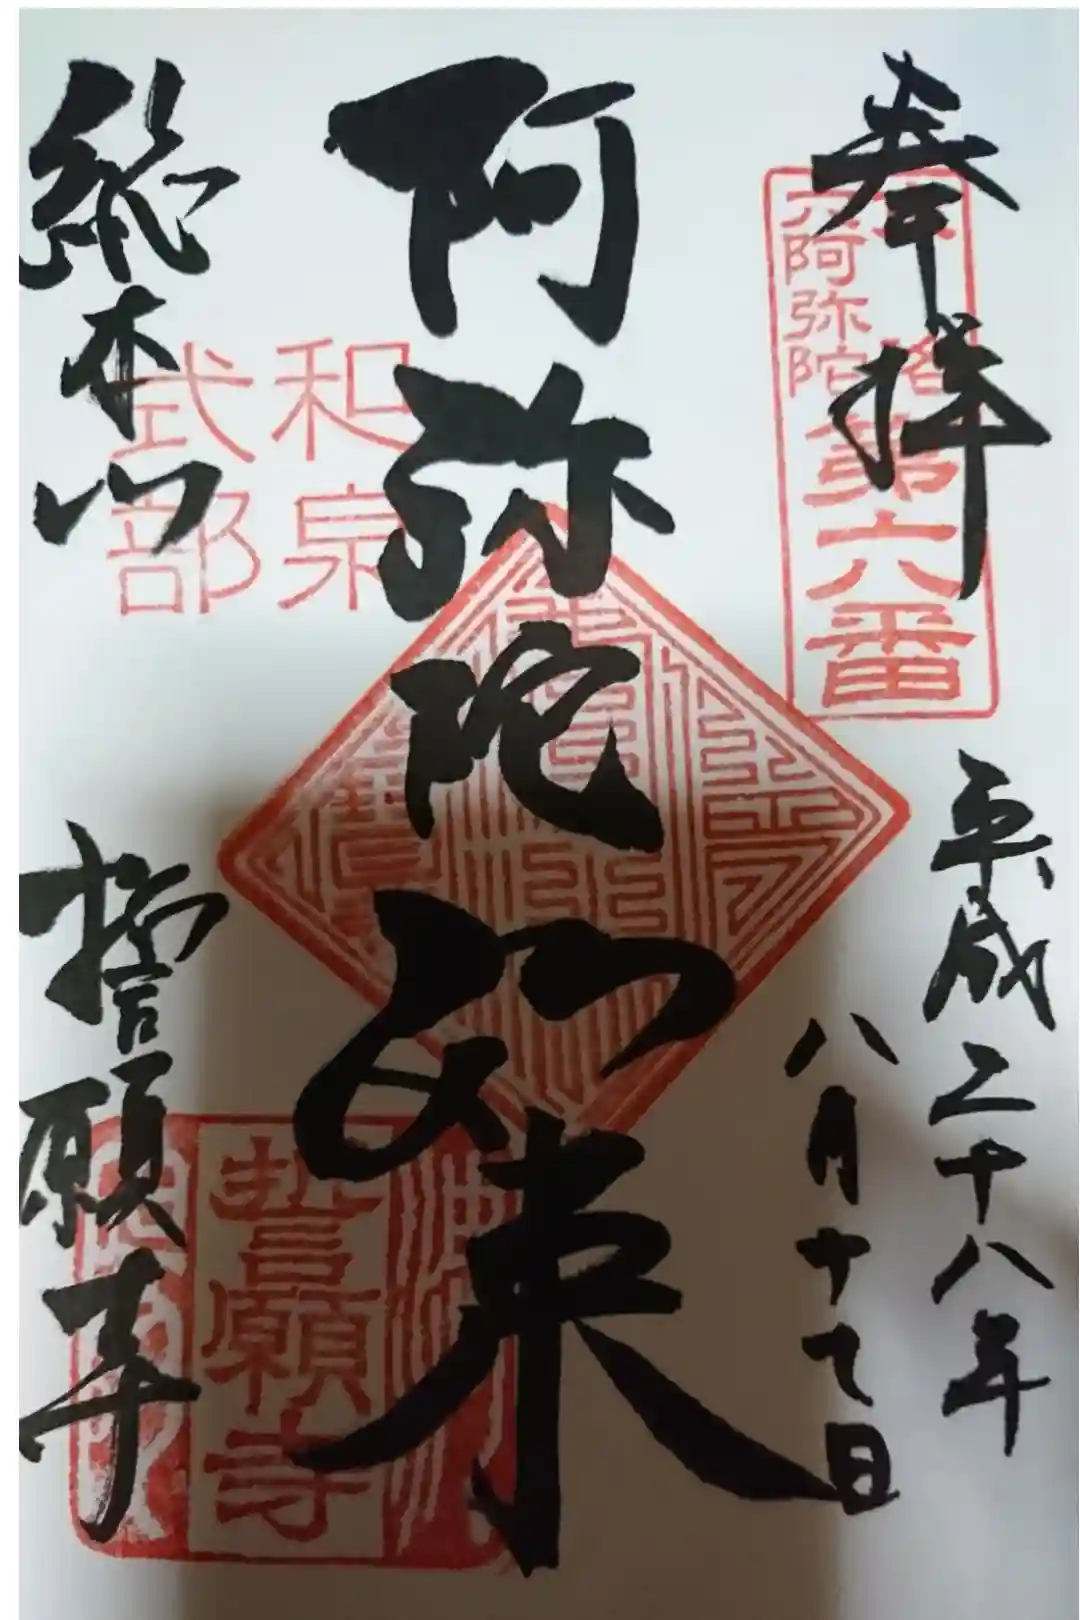 奉拝
京洛
六阿弥陀
第六番
平成二十八年
八月十七日
阿弥陀如来
和泉
式部
総本山
誓願寺
誓願寺